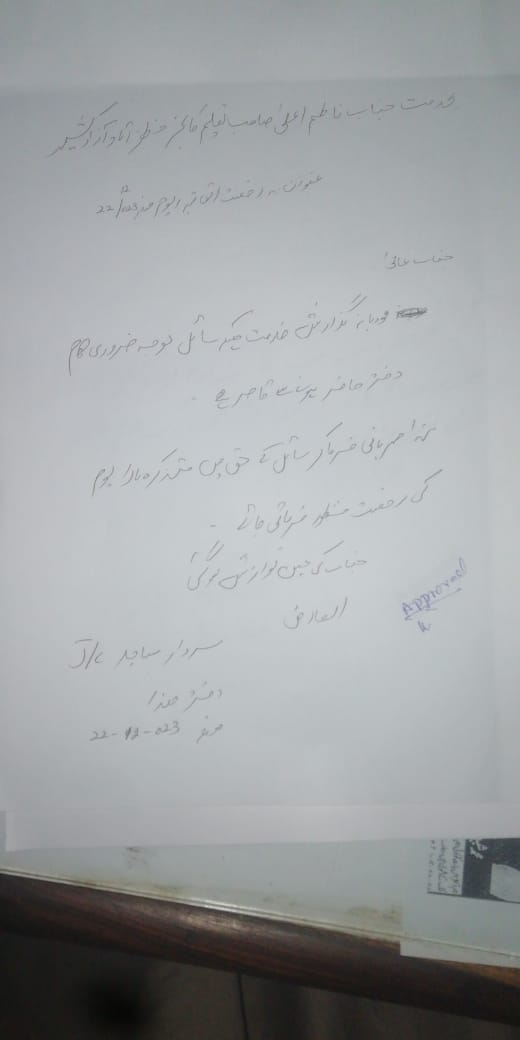 بخدمت جناب ناظم اعلیٰ صاحب تعلیم کالجز مظفر آباد آزاد کشمیر
عنوان :۔ رخصت اتفاقیہ یوم 22/12/023
جناب عالی!
مودبانہ گذارش خدمت ہیکہ سائل بوجہ ضروری کام
دفتر حاضر ہونے سے قاصر ہے ۔
لہذا مہربانی فرما کر سائل کے حق میں متذکرہ بالا یوم
کی رخصت منظور فرمائی جائے ۔
جناب کی عین نوازش ہوگی
العارض
Approved
سردار ساجد J/C
دفتر ھذا
مورخہ 22-12-023